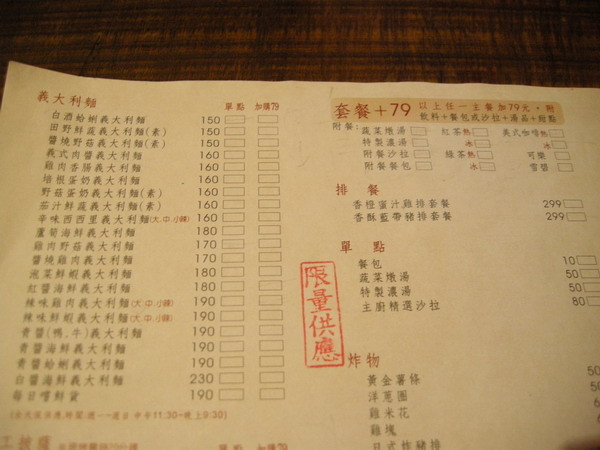 義大利麵 單點 加購79
白酒蛤蜊義大利麵 150
田野鮮蔬義大利麵(素) 150
醬燒野菇義大利麵(素) 150
義式肉醬義大利麵 160
雞肉香腸義大利麵 160
培根蛋奶義大利麵 160
野菇蛋奶義大利麵(素) 160
茄汁鮮蔬義大利麵(素) 160
辛味西西里義大利麵(大.中.小辣) 160
蘆筍海鮮義大利麵 180
雞肉野菇義大利麵 170
醬燒雞肉義大利麵 170
泡菜鮮蝦義大利麵 180
紅醬海鮮義大利麵 180
辣味雞肉義大利麵(大.中.小辣) 190
辣味鮮蝦義大利麵(大.中.小辣) 190
青醬(鴨.牛)義大利麵 190
青醬海鮮義大利麵 190
青醬蛤蜊義大利麵 190
白醬海鮮義大利麵 230
每日嚐鮮貨 190
單點 加購79
套餐+79 以上任一主餐加79元,附
飲料+餐包或沙拉+湯品+甜點
附餐: 蔬菜燉湯 紅茶熱 美式咖啡熱
特製濃湯 冰 冰
附餐沙拉 綠茶熱 可樂
附餐餐包 冰 雪碧
排餐
香橙蜜汁雞排套餐 299
香酥藍帶豬排套餐 299
單點
餐包 10
蔬菜燉湯 50
特製濃湯 50
主廚精選沙拉 80
限量供應
炸物
黃金薯條
洋蔥圈
雞米花
雞塊
日式炸豬排